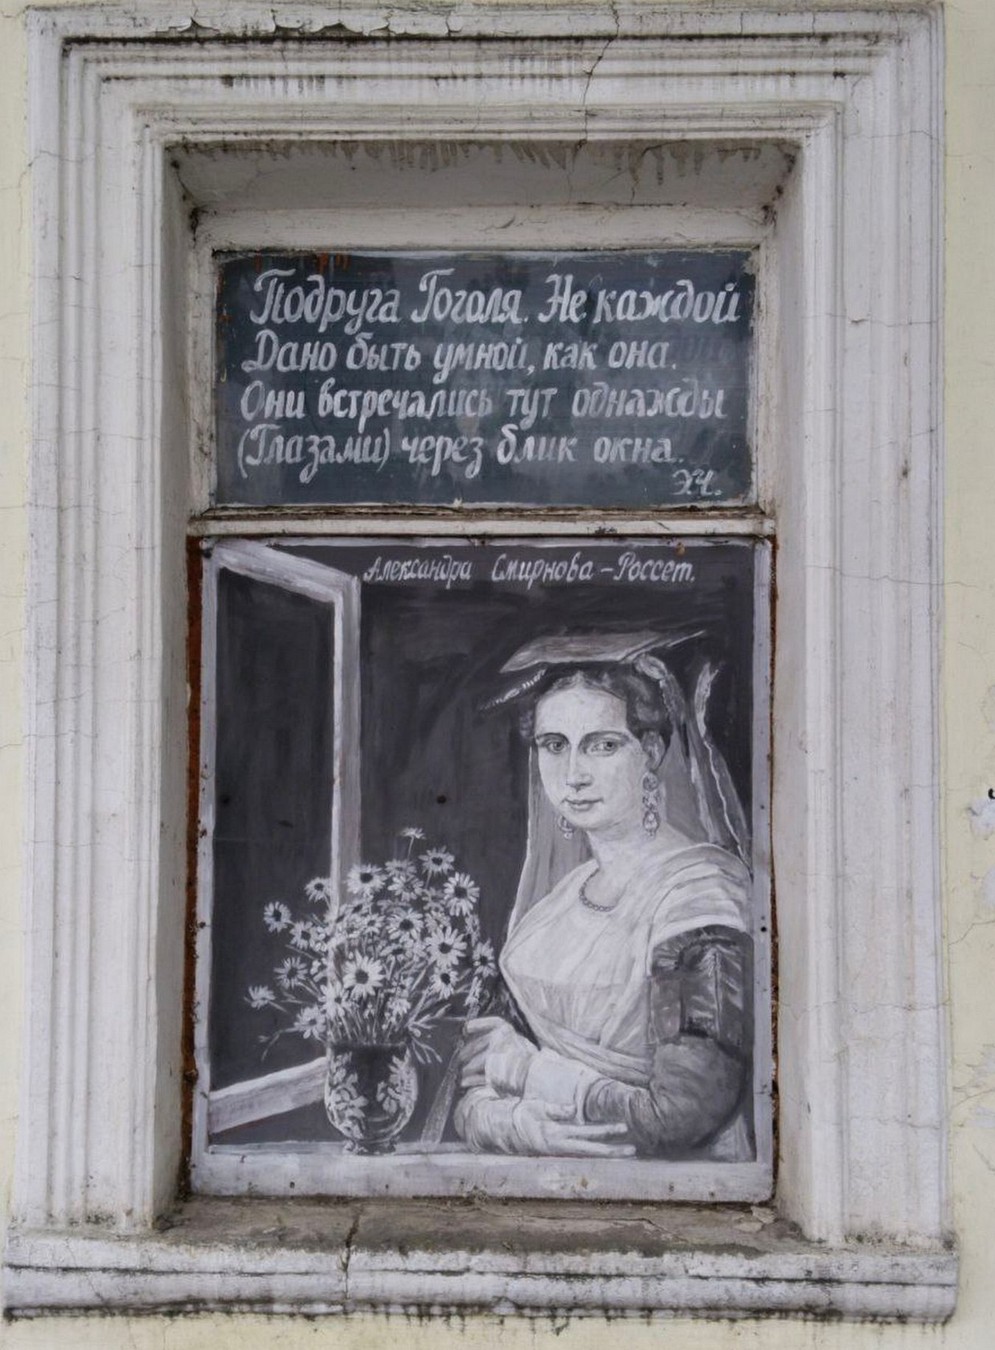 Подруга Гоголя. Не каждой
Дано быть умной, как она.
Они встречались тут однажды
(Глазами) через блик окна.
ЭЧ.
Александра Смирнова-Россет.